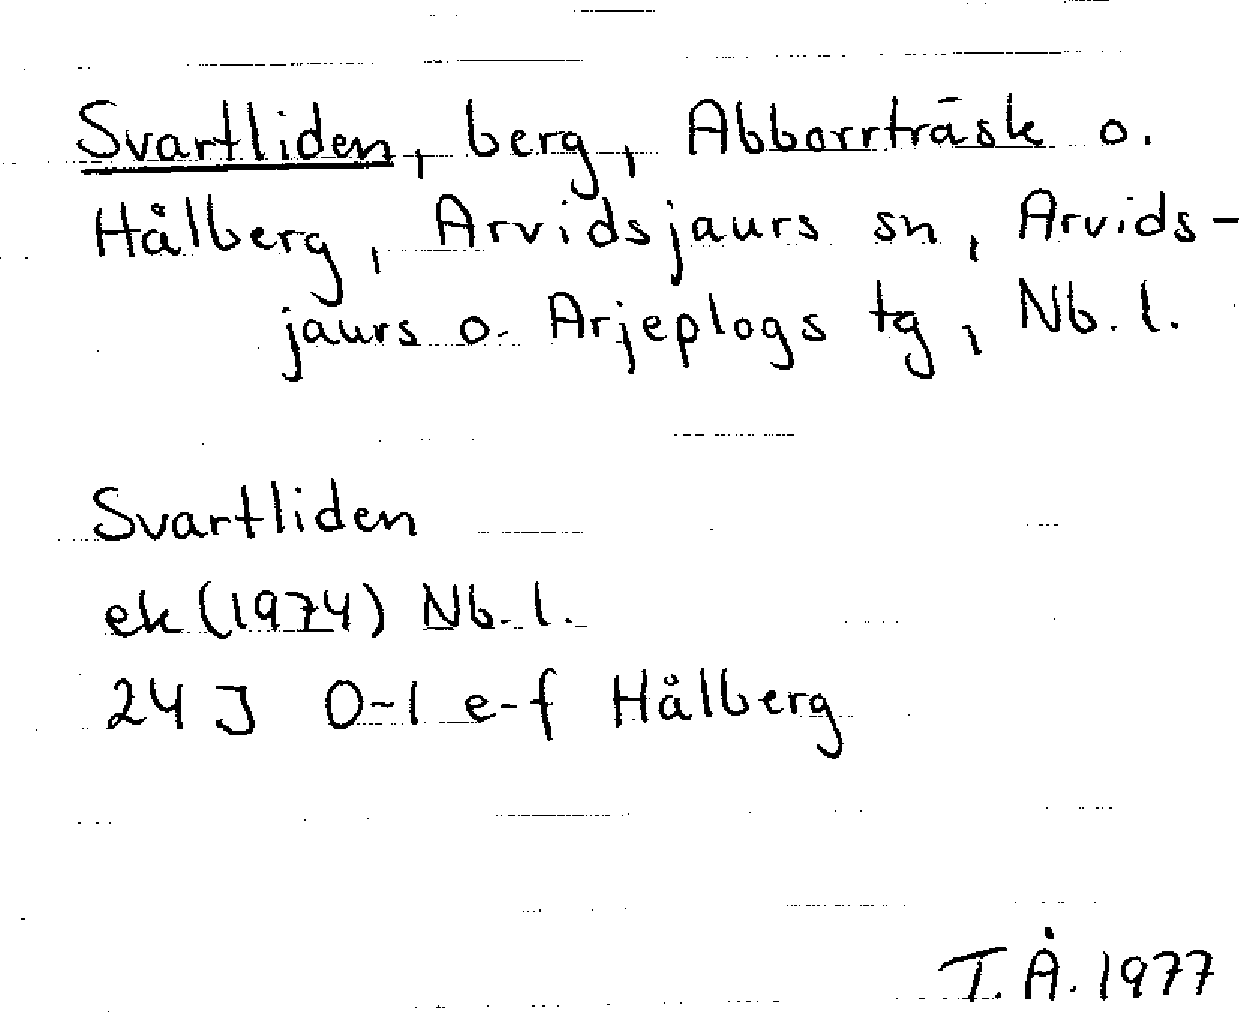 Svartliden, berg, Abborrträsk o.
Hålberg, Arvidsjaurs sn, Arvids-
jaurs o. Arjeplogs tg, Nb. l.
Svartliden
ek (1974) Nb. l.
24 J 0-1 e-f Hålberg
T. Å. 1977